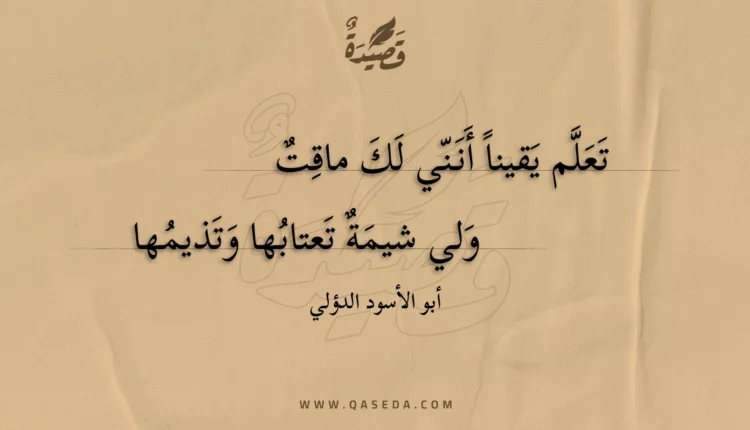 قَصِيدَةٌ
تَعَلَّم يَقيناً أَنَنّي لَكَ ماقِتٌ
وَلي شيمَةٌ تَعتابُها وَتَذيمُها
أبو الأسود الدؤلي
WWW.QASEDA.COM